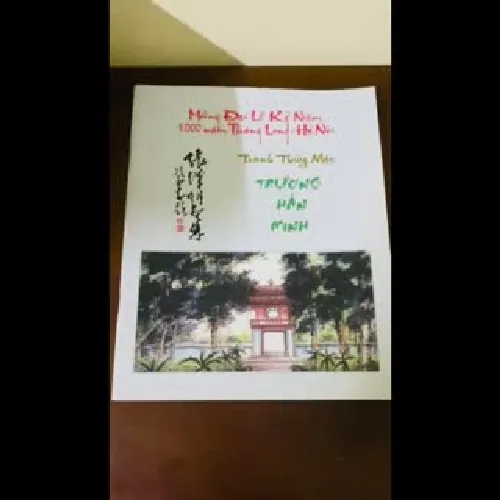 Mừng Đại Lễ Kỷ Niệm
1000 năm Thăng Long - Hà Nội
Tranh Thủy Mặc
TRƯƠNG
HÁN
MINH